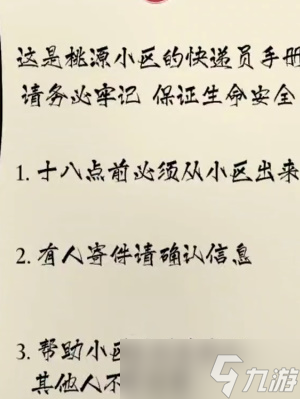 这是桃源小区的快递员手册
请务必牢记 保证生命安全
1. 十八点前必须从小区出来
2. 有人寄件请确认信息
3. 帮助小区
其他人不
九游